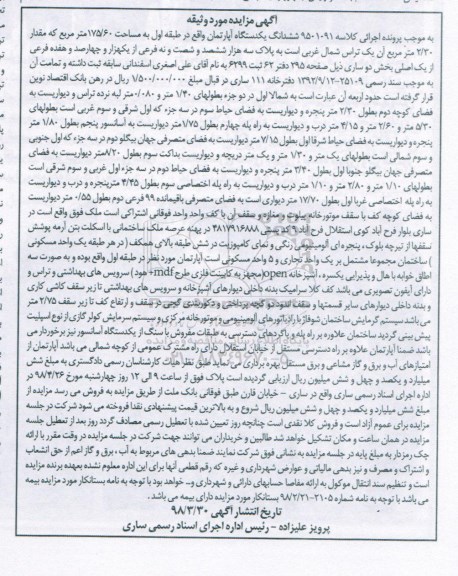 آگهی مزایده مورد وثیقه
به موجب پرونده اجرائی کلاسه ۹۵۰۱۰۹۱ ششدانگ یکدستگاه آپارتمان واقع در طبقه اول به مساحت ۱۷۵/۶۰متر مربع که مقدار
۲/۳۰ متر مربع آن یک تراس شمال غربی است به پلاک سه هزار ششصد و شصت و نه فرعی از یکهزار و چهارصد و هفده فرعی
از یک اصلی بخش دو ساری ذیل صفحه ۲۹۵ دفتر ۶۲ ثبت ۶۲۹۹ به نام آقای علی اصغری اسفندانی سابقه ثبت داشته و تمامت آن
به موجب سند رسمی ۲۵۱۰۹-۱۳۹۲/۹/۱۲ دفترخانه ۱۱۱ ساری در قبال مبلغ ۱/۵۰۰/۰۰۰/۰۰۰ ریال در رهن بانک اقتصاد نوین
قرار گرفته است حدود اربعه آن عبارت است به شمالا اول در دو جزء بطولهای ۱/۴۰ متر و ۰/۰۸۰متر لبه نرده تراس و دیواریست به
فضای کوچه دوم بطول ۲/۳۰ متر پنجره و دیواریست به فضای حیاط سوم در سه جزء که اول شرقی و سوم غربی است بطولهای
۵/۳۰ متر و ۲/۶۰ متر و ۴/۱۵ متر درب و دیواریست به راه پله چهارم بطول ۱/۷۵متر دیواریست به آسانسور پنجم بطول ۱/۸۰ متر
پنجره و دیواریست به فضای حیاط شرقا اول بطول ۷/۱۵ متر دیواریست به فضای متصرفی جهان بیگلو دوم در سه جزء که اول جنوبی
و سوم شمالی است بطولهای یک متر و ۱/۳۰ و یک متر دریچه و دیواریست بداکت سوم بطول ۸/۲۰متر دیواریست به فضای
متصرفی جهان بیگلو جنوبا اول بطول ۲/۴۰ متر پنجره و دیواریست به فضای حیاط دوم در سه جزء که اول غربی و سوم شرقی است
بطولهای ۱/۱۰ متر و ۲/۸۰ متر و ۱/۱۰ متر درب و دیواریست به راه پله اختصاصی سوم بطول ۴/۴۵ مترپنجره و درب و دیواریست
به راه پله اختصاصی غربا اول بطول ۱۷/۷۰ متر دیواری است به فضای متصرفی باقیمانده ۹۹ فرعی دوم بطول ۰/۵۵ متر دیواریست
به فضای کوچه کف با سقف موتورخانه پیلوت و مغازه سقف آن با کف واحد فوقانی اشتراکی است ملک فوق واقع است در
ساری بلوار فرح آباد کوی استقلال فرح آباد ۹ کدپستی ۴۸۱۷۹۱۶۸۸۸ در پهنه عرصه ملک ساختمانی با اسکلت بتن آرمه پوشش
سقفها از تیرچه بلوک، پنجره ای آلومینیومی رنگی و نمای کامپوزیت در شش طبقه بالای همکف ( در هر طبقه یک واحد مسکونی
) ساختمان مجموعا مشتمل بر یک واحد تجاری و ۵ واحد مسکونی است آپارتمان مورد نظر در طبقه اول واقع بوده و به صورت سه
اطاق خوابه با هال و پذیرایی یکسره ، آشپزخانه openمجهز به کابینت فلزی طرح mdf+ هود) سرویس های بهداشتی و تراس و
دارای آیفون تصویری می باشد کف کلا سرامیک بدنه داخلی دیوارهای آشپزخانه و سرویس های بهداشتی تا زیر سقف کاشی کاری
و بدنه داخلی دیوارهای سایر قسمتها و سقف اندود گچ پرداختی و دکوربندی گچی در سقف و ارتفاع کف تا زیر سقف ۲/۷۵ متر
می باشد سیستم گرمایش ساختمان شوفاژ با رادیاتورهای آلومینیومی و موتورخانه مرکزی و سیستم سرمایش کولر گازی از نوع اسپلیت
پیش بینی گردید ساختمان علاوه بر راه پله و پاگردهای دسترسی به طبقات مفروش با سنگ از یکدستگاه آسانسور نیز برخوردار می
باشد ضمنا آپارتمان علاوه بر راه دسترسی مستقل از خیابان استقلال دارای راه مشترک عمومی از کوچه شمالی می باشد آپارتمان از
امتیازهای آب و برق و گاز مشاعی و برق مستقل بهره برداری می نماید طبق نظر هیات کارشناسان رسمی دادگستری به مبلغ شش
میلیارد و یکصد و چهل و شش میلیون ریال ارزیابی گردیده است پلاک فوق از ساعت ۹ الی ۱۲ روز چهارشنبه مورخ ۹۸/۴/۲۶ در
اداره اجرای اسناد رسمی ساری واقع در ساری – خیابان قارن طبق فوقانی بانک ملت از طریق مزایده به فروش می رسد مزایده از
مبلغ شش میلیارد و یکصد و چهل و شش میلیون ریال شروع و به بالاترین قیمت پیشنهادی نقدا فروخته می شود شرکت در جلسه
مزایده برای عموم آزاد است و فروش کلا نقدی است چنانچه روز تعیین شده با تعطیل رسمی مصادف گردد روز بعد از تعطیل جلسه
مزایده در همان ساعت و مکان تشکیل خواهد شد طالبین و خریداران می توانند جهت شرکت در جلسه مزایده در وقت مقرر با ارائه
چک رمزدار به مبلغ پایه در جلسه مزایده به نشانی فوق شرکت نمایند ضمنا بدهی های مربوط به آب ، برق و گاز اعم از حق انشعاب
و اشتراک و مصرف و نیز بدهی مالیاتی و عوارض شهرداری و غیره که رقم قطعی آنها برای این اداره معلوم نشده بعهده برنده مزایده
است و تنظیم سند انتقال موکول به ارائه مفاصا حسابهای دارائی و شهرداری و... خواهد بود با توجه به نامه بستانکار مورد مزایده بیمه
می باشد با توجه به نامه شماره ۲۱۰۵-۹۸/۲/۲۱ بستانکار مورد مزایده دارای بیمه می باشد .
تاریخ انتشار آگهی ۹۸/۳/۳۰
پرویز علیزاده – رئیس اداره اجرای اسناد رسمی ساری